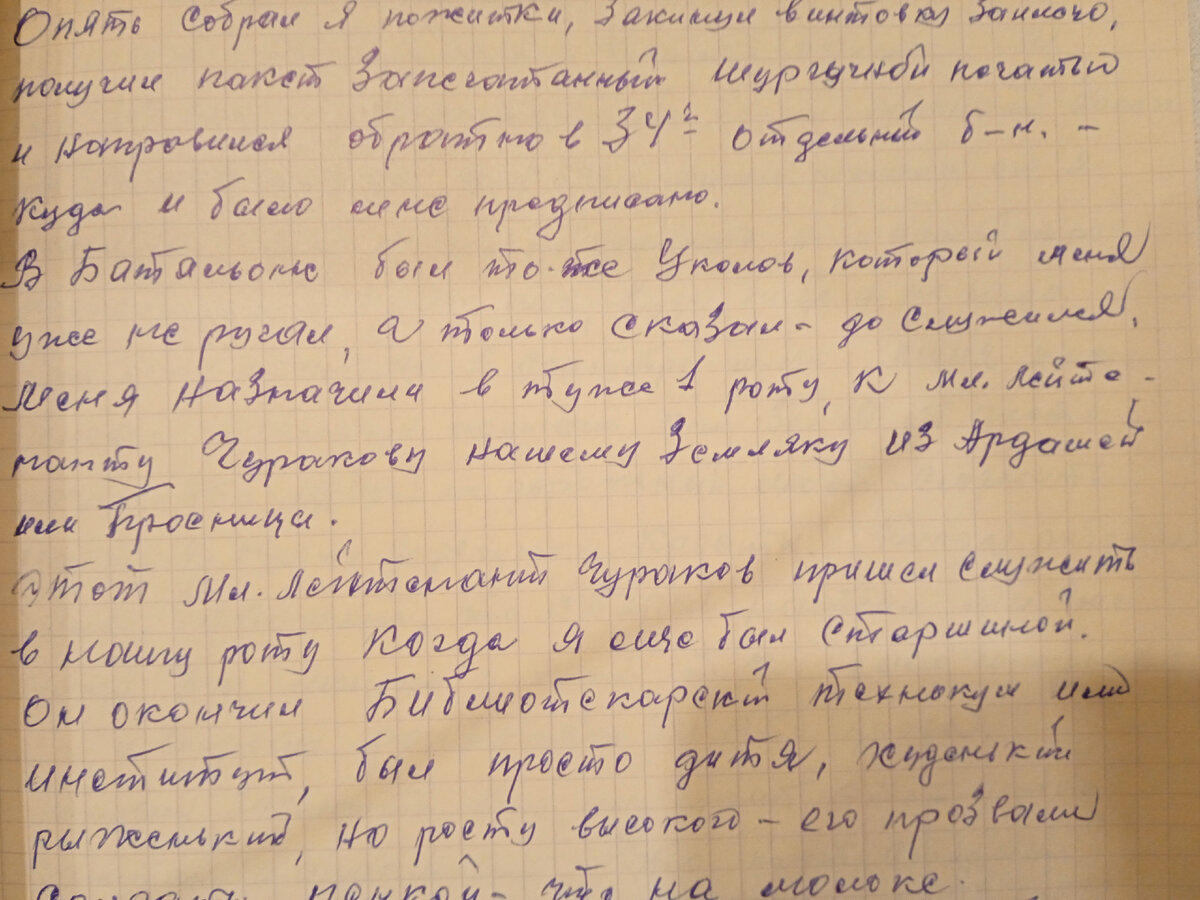 Опять собрал я пожитки, закинул винтовку заплечо,
получил пакет запечатанный сургучной печатью
и направился обратно в 34й отдельный б-н. -
куда и было мне предписано.
В Батальоне был то-же Уколов, который меня
уже не ругал, а только сказал - до служился,
меня назначили в туже 1 роту, к мл. Лейте-
нанту Чуракову нашему земляку из Ардашей
или Просница.
Этот Мл. Лейтенант Чураков пришел служить
в нашу роту когда я еще был старшиной.
Он окончил Библиотекарский техникум или
институт, был просто дитя, худенький
рыженький, но росту высокого - его прозвали
солдаты пенкой - что на молоке.